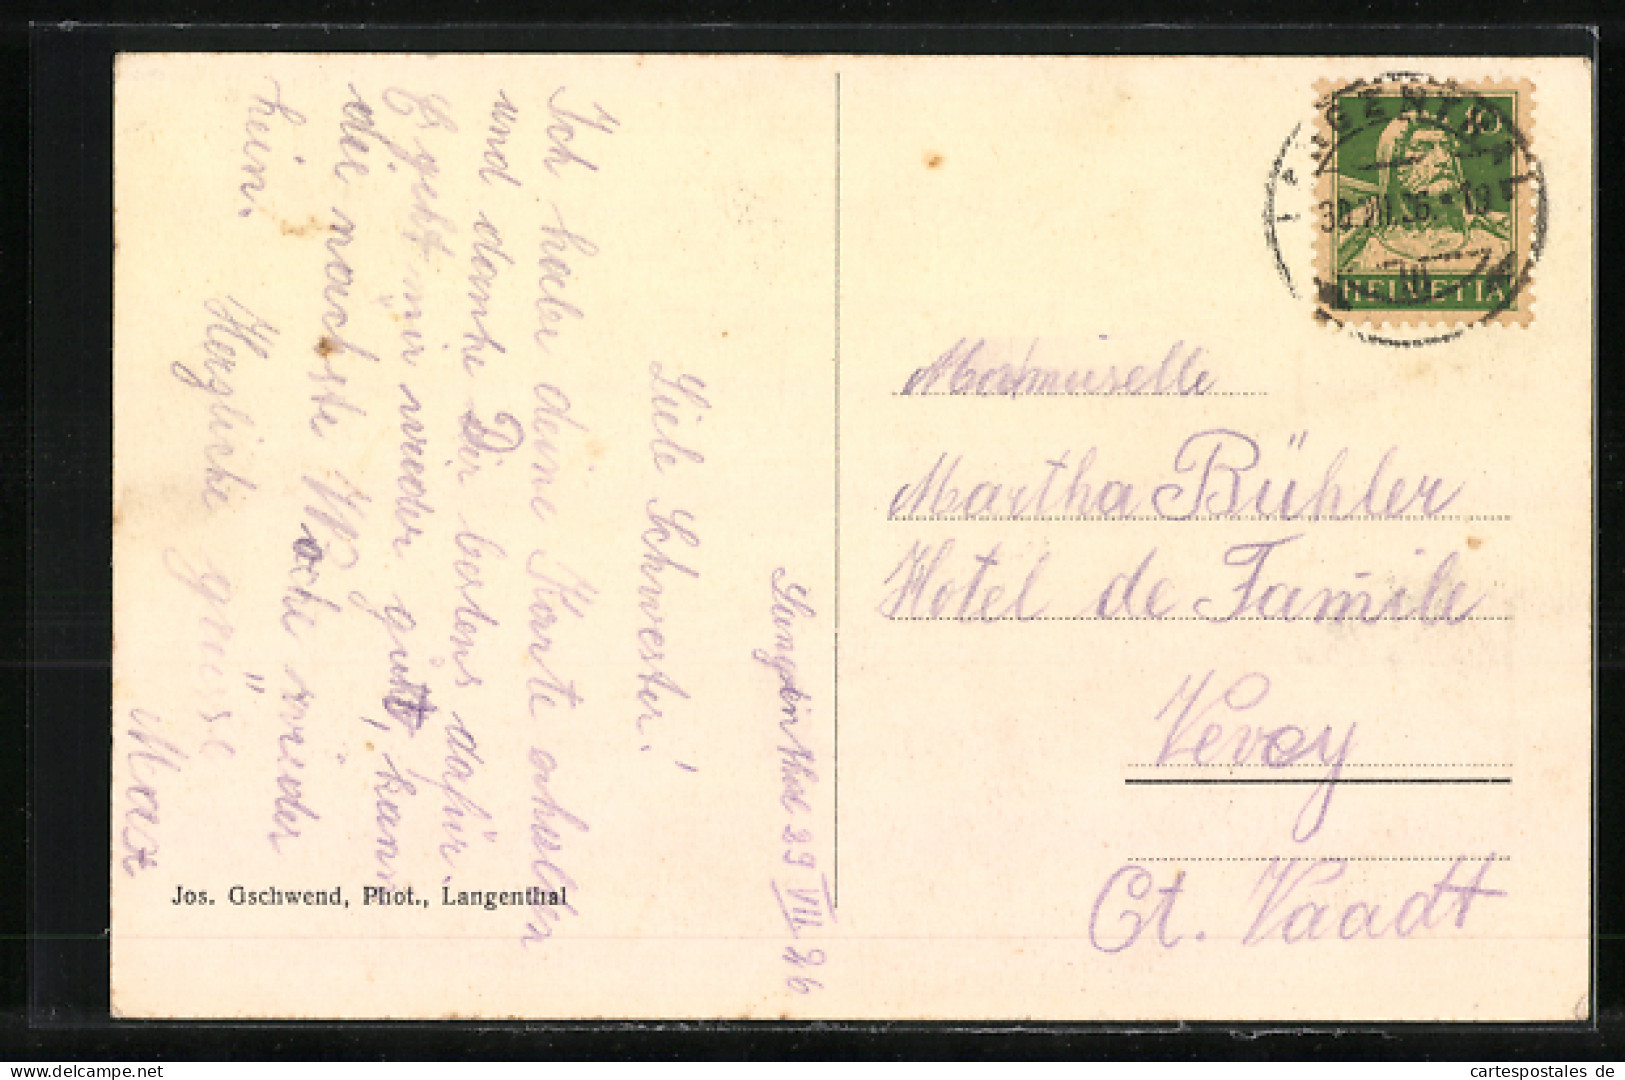 Langenthal 29 VII 26
Liebe Schwester!
Ich habe deine Karte erhalten
und danke Dir bestens dafür.
Es geht mir wieder gut, kann
die nächste Woche wieder
heim.
Herzliche grüsse
Max
Jos. Gschwend, Phot., Langenthal
LANGENTHAL
10
HELVETIA
Mamuiselle
Martha Bühler
Hotel de Familie
Vevey
Ct. Vaadt
cartespostales de